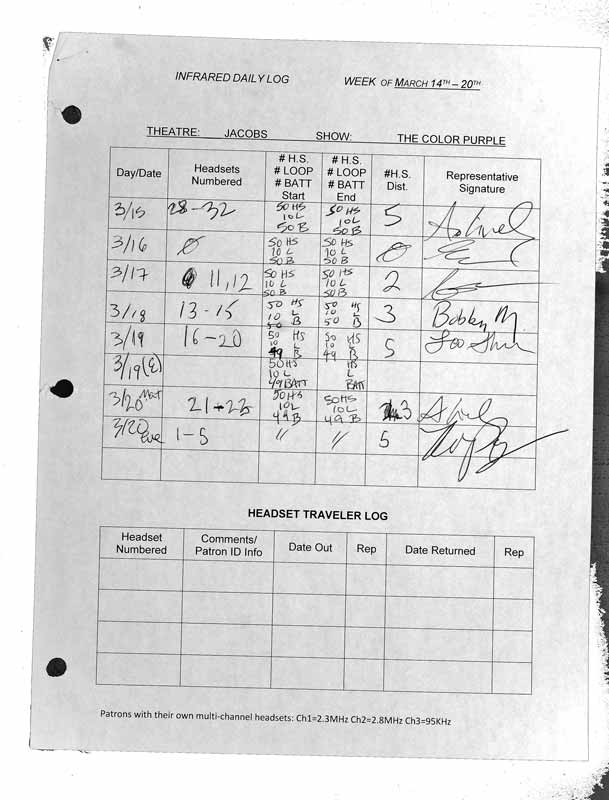 INFRARED DAILY LOG WEEK OF MARCH 14TH – 20TH
THEATRE: JACOBS SHOW: THE COLOR PURPLE
Day/Date Headsets Numbered # H.S. # LOOP # BATT Start # H.S. # LOOP # BATT End #H.S. Dist. Representative Signature
3/15 28-32 50 HS 10 L 50 B 50 HS 10 L 50 B 5
3/16 Ø 50 HS 10 L 50 B 50 HS 10 L 50 B Ø
3/17 11, 12 50 HS 10 L 50 B 50 HS 10 L 50 B 2
3/18 13-15 50 HS 10 L 50 B 50 HS 10 L 50 B 3 Bobby M
3/19 16-20 50 HS 10 L 49 B 50 HS 10 L 49 B 5
3/19(E) 50 HS 10 L 49 BATT HS L BATT
3/20 Mat 21-23 50 HS 10 L 49 B 50 HS 10 L 49 B 3
3/20 Eve 1-5 " " 5
HEADSET TRAVELER LOG
Headset Numbered Comments/ Patron ID Info Date Out Rep Date Returned Rep
Patrons with their own multi-channel headsets: Ch1=2.3MHz Ch2=2.8MHz Ch3=95KHz